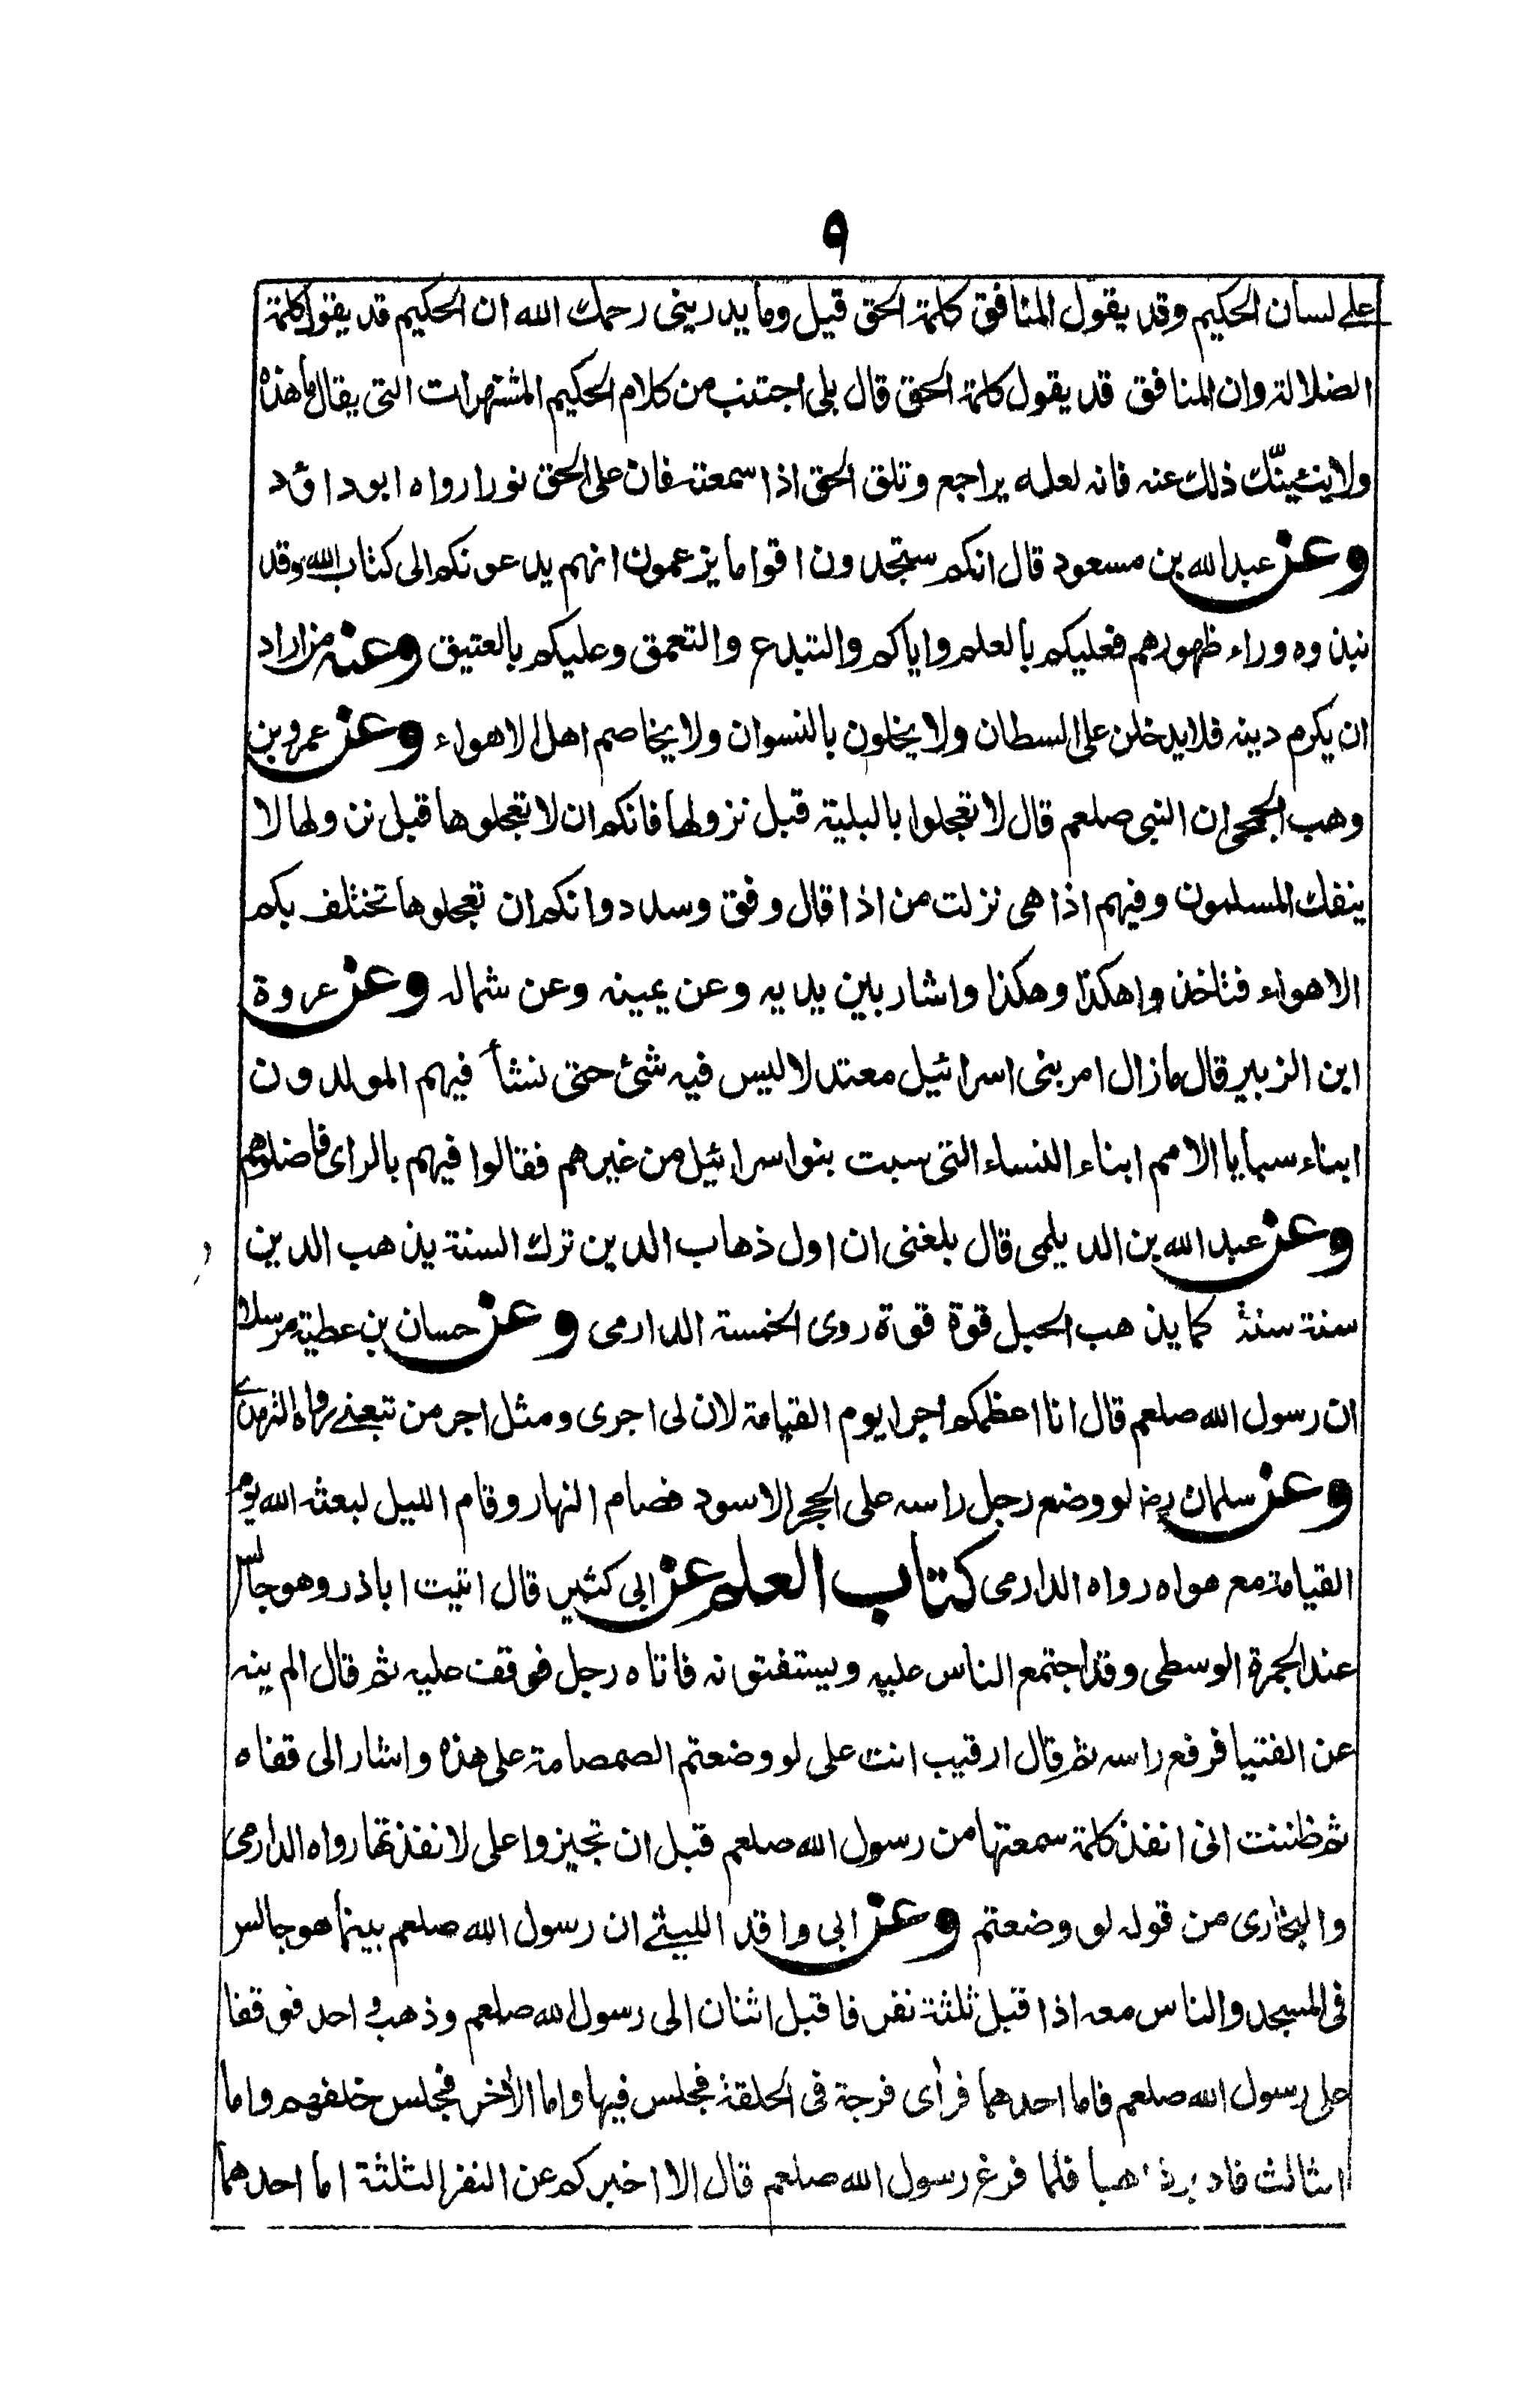 ٩
على لسان الحكيم وقد يقول المنافق كلمة الحق قيل وما يدريني رحمك الله ان الحكيم قد يقول كلمة
الضلالة وان المنافق قد يقول كلمة الحق قال بلى اجتنب من كلام الحكيم المشتهرات التى يقال ما هذه
ولا يثنينّك ذلك عنه فانه لعله يراجع وتلق الحق اذا سمعته فان على الحق نورا رواه ابوداؤد
وعن عبدالله بن مسعود قال انكم ستجدون اقواما يزعمون انهم يدعونكم الى كتاب الله وقد
نبذوه وراء ظهورهم فعليكم بالعلم واياكم والتبدع والتعمق وعليكم بالعتيق وعنه من اراد
ان يكرم دينه فلا يدخلن على السطان ولا يخلون بالنسوان ولا يخاصم اهل الاهواء وعن عمرو بن
وهب الجمحى ان النبى صلعم قال لا تعجلوا بالبلية قبل نزولها فانكم ان لا تعجلوها قبل نزولها لا
ينفك المسلمون وفيهم اذا هى نزلت من اذا قال وفق وسدد وانكم ان تعجلوها تختلف بكم
الاهواء فتاخذوا هكذا وهكذا واشار بين يديه وعن يمينه وعن شماله وعن عروة
ابن الزبير قال ما زال امر بنى اسرائيل معتدلا ليس فيه شئ حتى نشأ فيهم المولدون
ابناء سبايا الامم ابناء النساء التى سبت بنوا سرائيل من غيرهم فقالوا فيهم بالراى فاضلوهم
وعن عبدالله بن الديلمى قال بلغنى ان اول ذهاب الدين ترك السنة يذهب الدين
سنة سنة كما يذهب الحبل قوة قوة روى الخمسة الدارمى وعن حسان بن عطية مرسلا
ان رسول الله صلعم قال انا اعظمكم اجرا يوم القيامة لان لى اجرى ومثل اجر من تبعنى رواه الترمذى
وعن سلمان رض لو وضع رجل راسه على الحجر الاسود فصام النهار وقام الليل لبعثه الله يوم
القيامة مع هواه رواه الدارمى كتاب العلم عن ابى كثير قال اتيت اباذر وهو جالس
عند الجمرة الوسطى وقد اجتمع الناس عليه ويستفتونه فاتاه رجل فوقف عليه ثم قال الم ينه
عن الفتيا فرفع راسه ثم قال ارقيب انت على لو وضعتم الصمصامة على هذه واشار الى قفاه
ثم ظننت انى انفذ كلمة سمعتها من رسول الله صلعم قبل ان تجيزوا على لانفذتها رواه الدارمى
والبخارى من قوله لو وضعتم وعن ابى واقد الليثى ان رسول الله صلعم بينما هو جالس
فى المسجد والناس معه اذ اقبل ثلثة نفر فاقبل اثنان الى رسول الله صلعم وذهب واحد فوقفا
على رسول الله صلعم فاما احدهما فرأى فرجة فى الحلقة فجلس فيها واما الأخر فجلس خلفهم واما
الثالث فادبر ذاهبا فلما فرغ رسول الله صلعم قال الا اخبركم عن النفر الثلثة اما احدهما